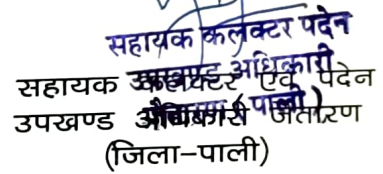 सहायक कलक्टर पदेन
उपखण्ड अधिकारी
सहायक कलक्टर एवं पदेन
(पाली)
उपखण्ड अधिकारी जैतारण
(जिला-पाली)